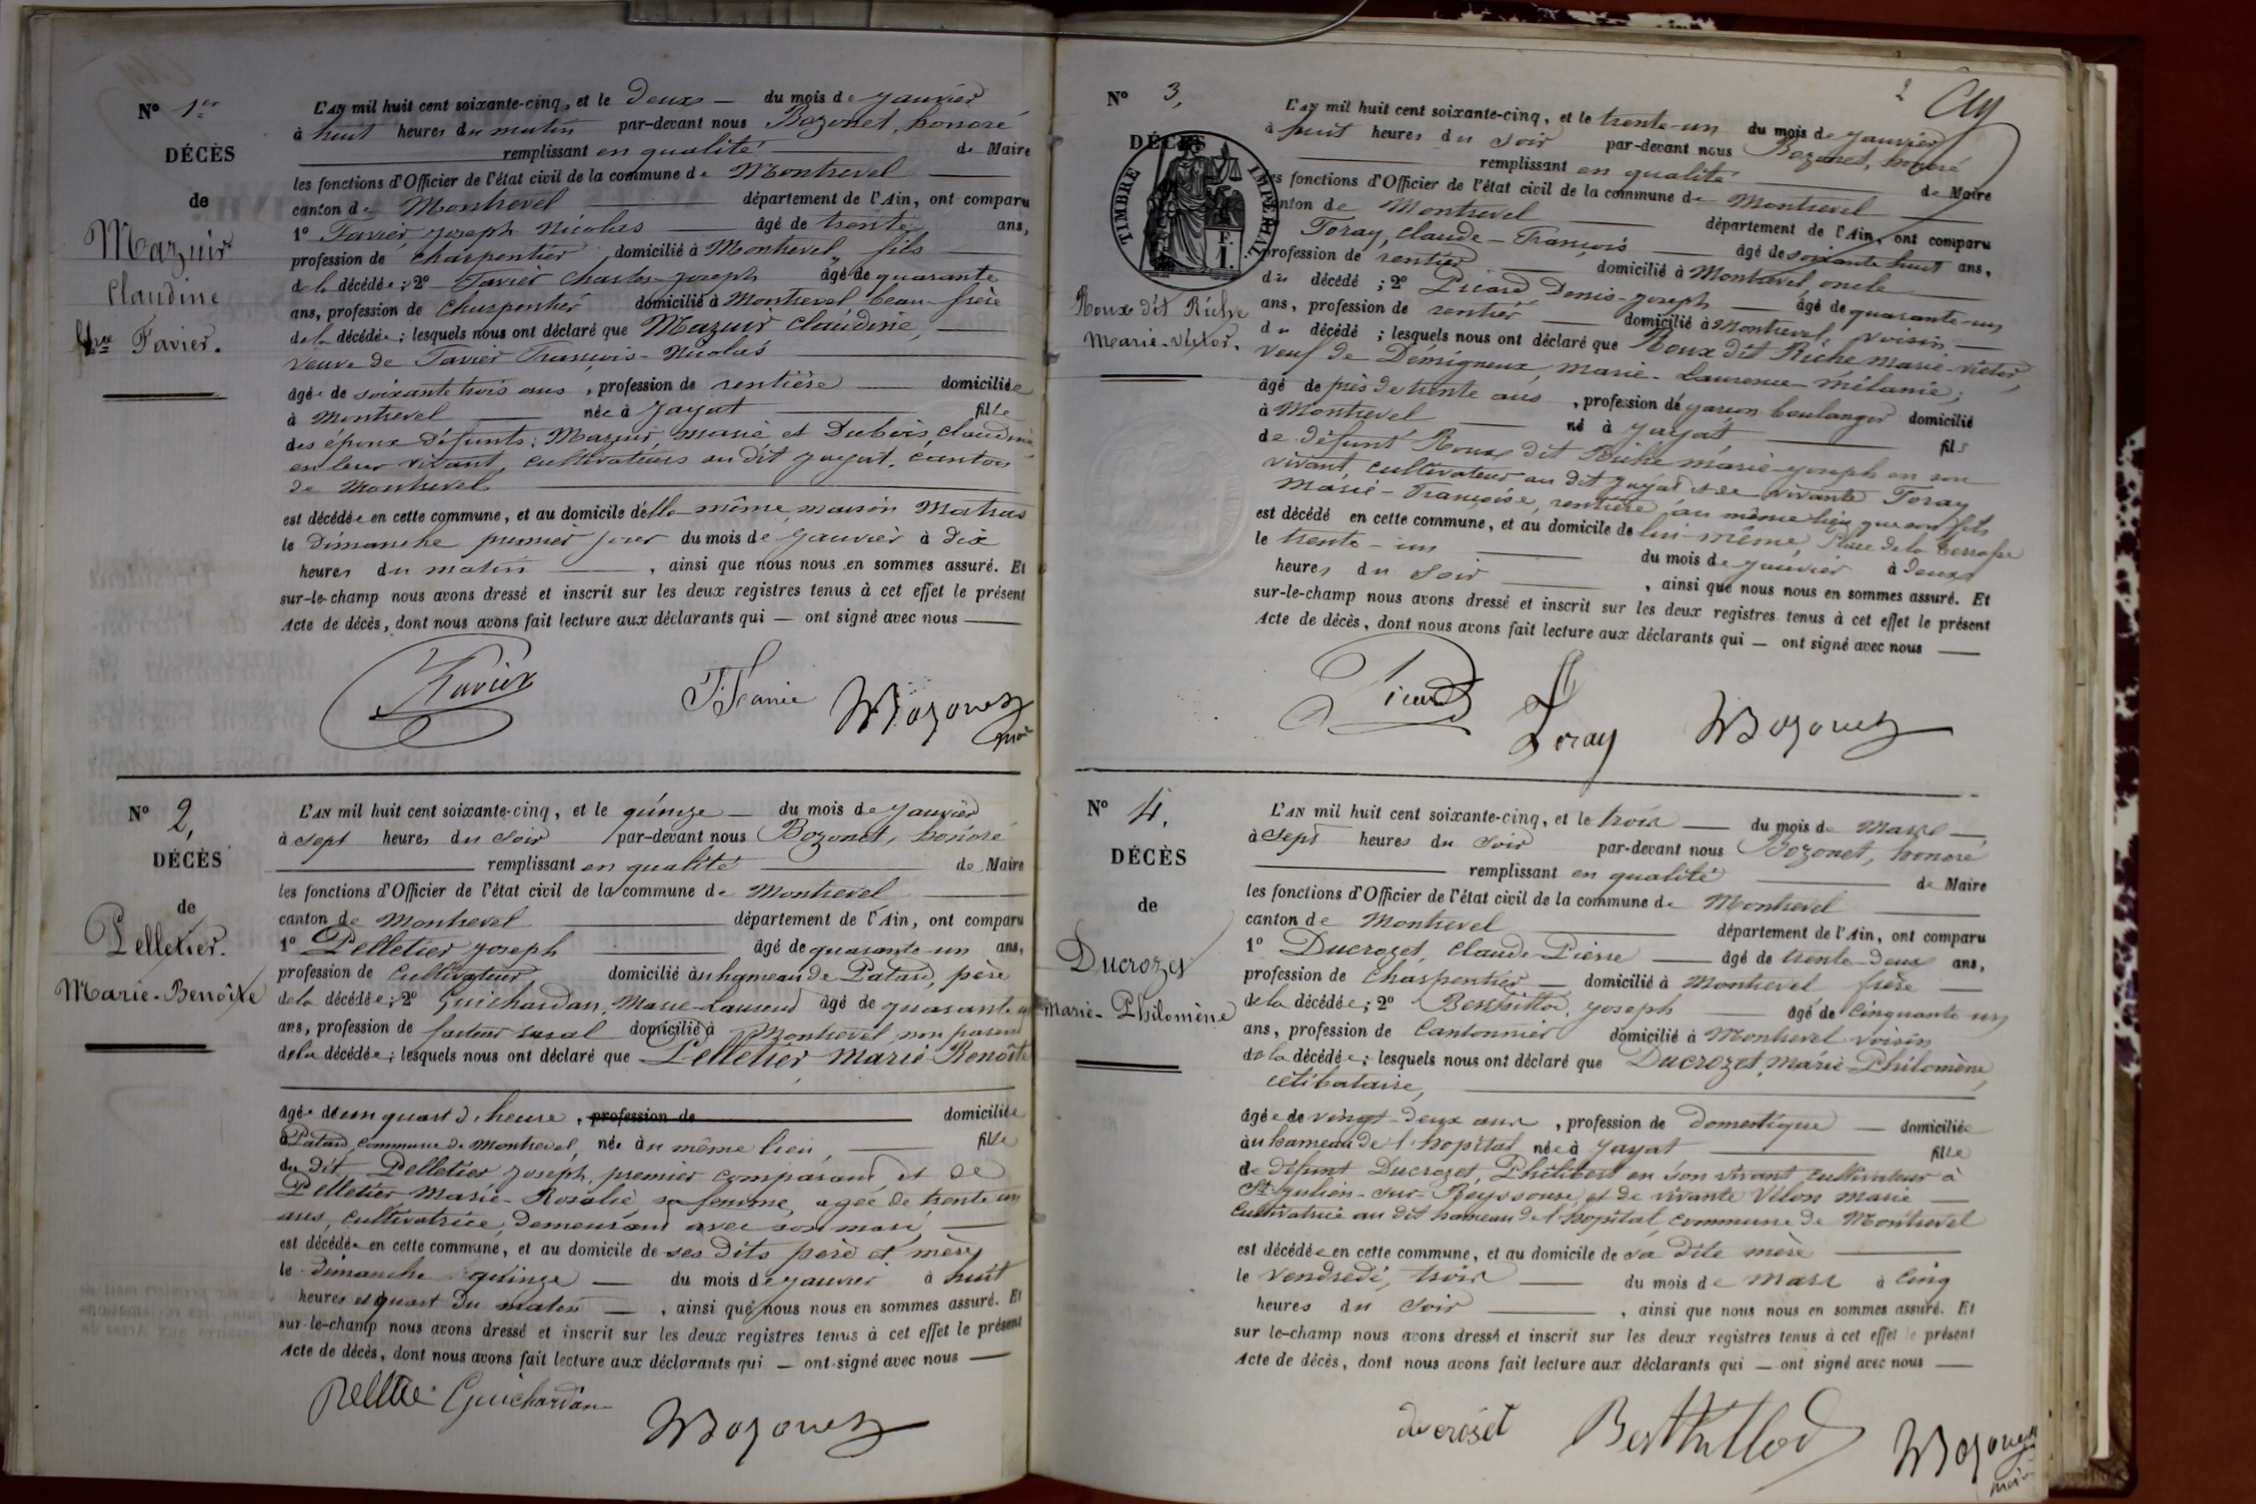 N° 1er
DÉCÈS
de
Mazuir
Claudine
Vve Favier.
L'AN mil huit cent soixante-cinq, et le deux — du mois de janvier
à huit heures du matin par-devant nous Bozonet, honoré
remplissant en qualité de Maire
les fonctions d'Officier de l'état civil de la commune de Montrevel
canton de Montrevel département de l'Ain, ont comparu
1° Favier, joseph Nicolas âgé de trente ans,
profession de charpentier domicilié à Montrevel, fils
de la décédée; 2° Favier Charles-joseph âgé de quarante
ans, profession de charpentier domicilié à Montrevel beau-frère
de la décédée; lesquels nous ont déclaré que Mazuir claudine,
veuve de Favier François-Nicolas
âgée de soixante trois ans, profession de rentière domiciliée
à Montrevel née à jayat fille
des époux défunts: Mazuir, marie et Dubois, claudine
en leur vivant, cultivateurs au dit jayat, canton
de Montrevel
est décédée en cette commune, et au domicile d'elle-même, maison Mathas
le dimanche premier jour du mois de janvier à dix
heures du matin, ainsi que nous nous en sommes assuré. Et
sur-le-champ nous avons dressé et inscrit sur les deux registres tenus à cet effet le présent
Acte de décès, dont nous avons fait lecture aux déclarants qui — ont signé avec nous
Favier Bozonet
N° 2,
DÉCÈS
de
Pelletier.
Marie-Benoîte
L'AN mil huit cent soixante-cinq, et le quinze — du mois de janvier
à sept heures du soir par-devant nous Bozonet, honoré
remplissant en qualité de Maire
les fonctions d'Officier de l'état civil de la commune de Montrevel
canton de Montrevel département de l'Ain, ont comparu
1° Pelletier joseph âgé de quarante-un ans,
profession de Cultivateur domicilié au hameau de Patard, père
de la décédée; 2° Guichardan, Marie-Laurend âgé de quarante
ans, profession de facteur rural domicilié à Montrevel, non parent
de la décédée; lesquels nous ont déclaré que Pelletier Marie Benoîte
âgée d'un quart d'heure, profession de domiciliée
à Patard, commune de Montrevel, née au même lieu, fille
du dit Pelletier joseph, premier comparant, et de
Pelletier Marie-Rosalie, sa femme, agée de trente un
ans, cultivatrice, demeurant avec son mari,
est décédée en cette commune, et au domicile de ses dits père et mère
le dimanche quinze — du mois de janvier à huit
heures et quart du matin —, ainsi que nous nous en sommes assuré. Et
sur-le-champ nous avons dressé et inscrit sur les deux registres tenus à cet effet le présent
Acte de décès, dont nous avons fait lecture aux déclarants qui — ont signé avec nous —
Guichardan
Bozonet
2
N° 3,
DÉCÈS
TIMBRE IMPÉRIAL
Roux dit Riche
Marie-Victor.
L'AN mil huit cent soixante-cinq, et le trente-un du mois de janvier
à huit heures du soir par-devant nous Bozonet, honoré
remplissant en qualité de Maire
les fonctions d'Officier de l'état civil de la commune de Montrevel
canton de Montrevel département de l'Ain, ont comparu
Foray, claude-François âgé de soixante huit ans,
profession de rentier domicilié à Montrevel, oncle
du décédé; 2° Picard Denis-joseph âgé de quarante-un
ans, profession de rentier domicilié à Montrevel, voisin
du décédé; lesquels nous ont déclaré que Roux dit Riche, Marie-victor,
veuf de Démigneux, Marie-Laurence-mélanie;
âgé de près de trente ans, profession de garçon boulanger domicilié
à Montrevel né à jayat fils
de défunt Roux dit Riche marie-joseph en son
vivant, cultivateur au dit jayat et de vivante Foray
Marie-Françoise, rentière, au même lieu que son fils
est décédé en cette commune, et au domicile de lui-même, Place de la
le trente-un du mois de janvier à deux
heures du soir, ainsi que nous nous en sommes assuré. Et
sur-le-champ nous avons dressé et inscrit sur les deux registres tenus à cet effet le présent
Acte de décès, dont nous avons fait lecture aux déclarants qui — ont signé avec nous —
Picard Foray Bozonet
N° 4.
DÉCÈS
de
Ducrozet
Marie-Philomène
L'AN mil huit cent soixante-cinq, et le trois — du mois de Mars
à sept heures du soir par-devant nous Bozonet, honoré
remplissant en qualité de Maire
les fonctions d'Officier de l'état civil de la commune de Montrevel
canton de Montrevel département de l'Ain, ont comparu
1° Ducrozet, Claude-Pierre — âgé de trente-deux ans,
profession de Charpentier — domicilié à Montrevel frère —
de la décédée; 2° Berthillod, joseph âgé de cinquante un
ans, profession de Cantonnier domicilié à Montrevel voisin
de la décédée; lesquels nous ont déclaré que Ducrozet, Marie-Philomène,
célibataire,
âgée de vingt-deux ans, profession de Domestique — domiciliée
au hameau de l'hopital née à jayat fille
de défunt Ducrozet, Philibert en son vivant cultivateur à
St-julien-sur-Reyssouze, et de vivante Velon marie —
cultivatrice au dit hameau de l'hopital, commune de Montrevel
est décédée en cette commune, et au domicile de sa dite mère
le vendredi, trois du mois de mars à cinq
heures du soir, ainsi que nous nous en sommes assuré. Et
sur le-champ nous avons dressé et inscrit sur les deux registres tenus à cet effet le présent
Acte de décès, dont nous avons fait lecture aux déclarants qui — ont signé avec nous —
ducroset Berthillod Bozonet